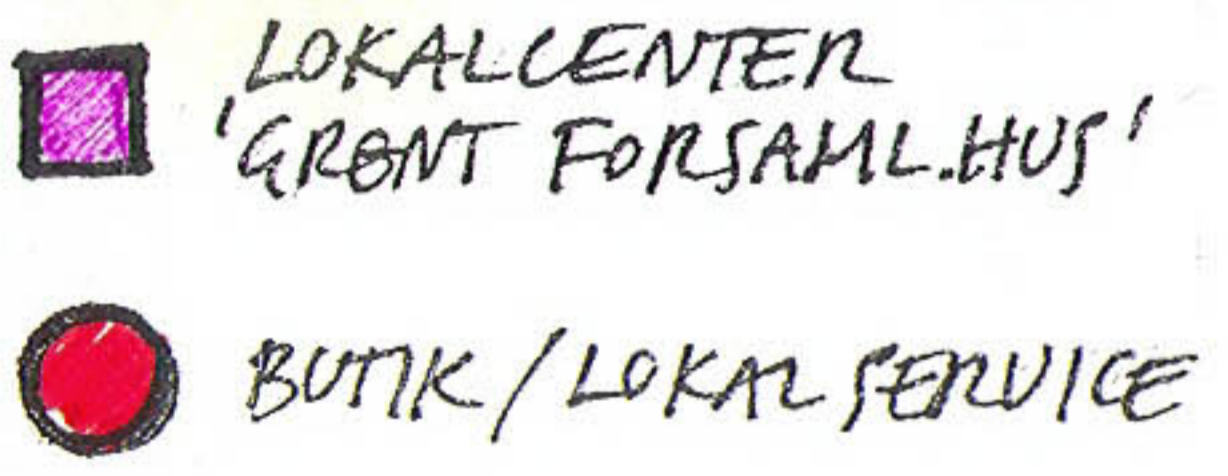 LOKALCENTER
'GRØNT FORSAML.HUS'
BUTIK / LOKAL SERVICE